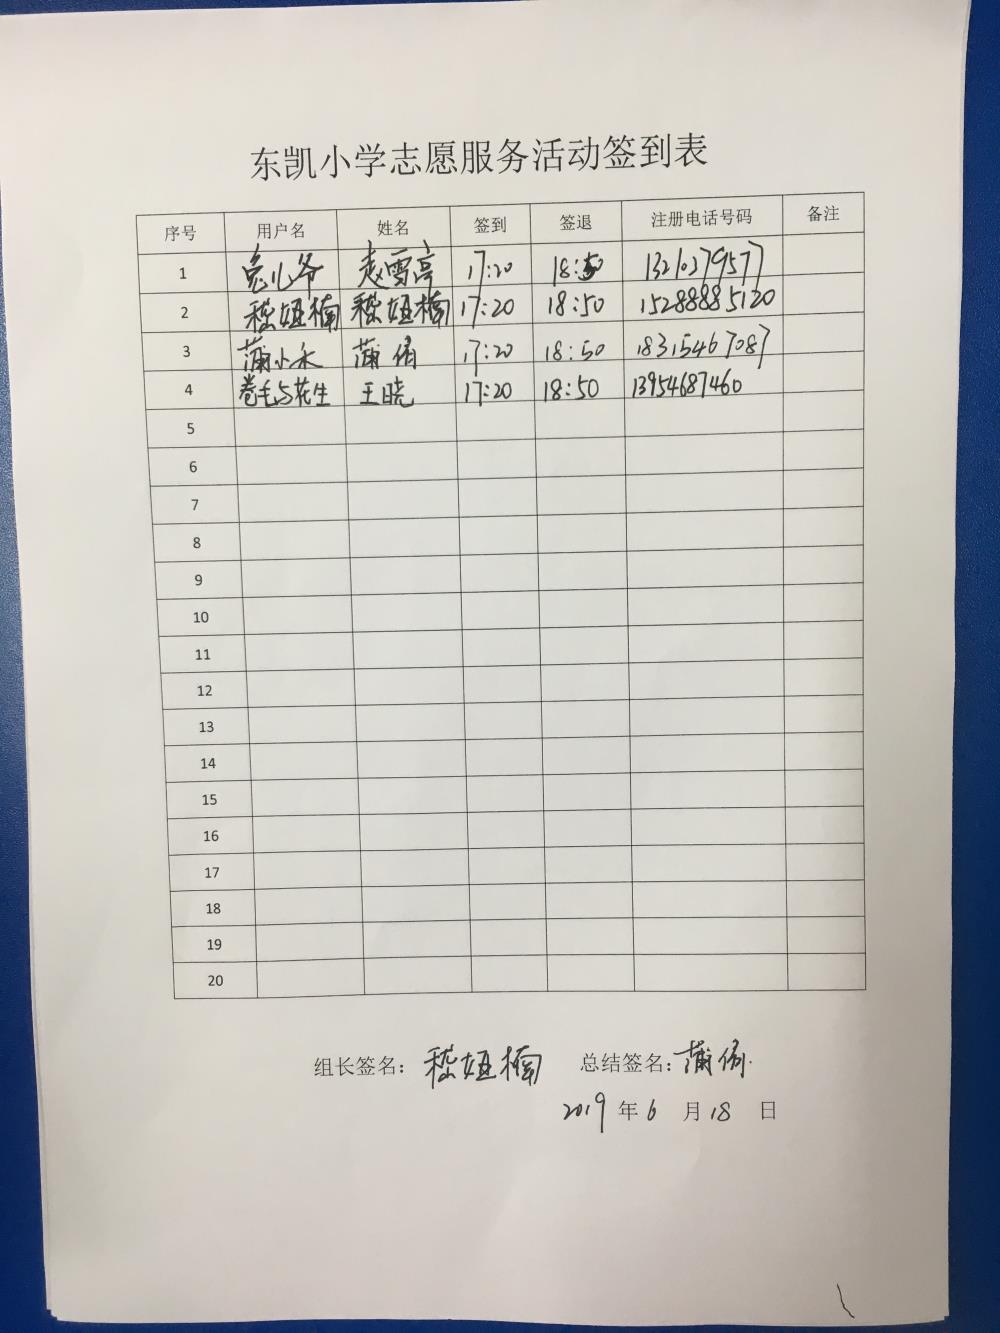 东凯小学志愿服务活动签到表
序号 用户名 姓名 签到 签退 注册电话号码 备注
1 兔儿爷 赵雪亭 17:20 18:50 13210279577
2 嵇妞楠 嵇妞楠 17:20 18:50 15288885120
3 蒲小永 蒲倩 17:20 18:50 18315467087
4 卷毛与花生 王晓 17:20 18:50 13954687460
5
6
7
8
9
10
11
12
13
14
15
16
17
18
19
20
组长签名：嵇妞楠 总结签名：蒲倩
2019 年 6 月 18 日